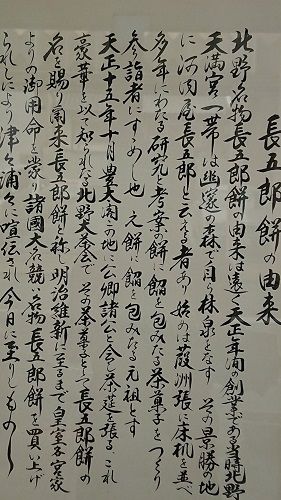 長五郎餅の由来
北野名物長五郎餅の由来は遠く天正年間の創業である当時北野
天満宮一帯は幽邃の森で自ら林泉をなす その景勝地
に河内屋長五郎と云える者あり 始めは葭洲張に床机を並べ
多年にわたる研究と考案の餅に餡を包みたる茶菓子をつくり
参詣者にすゝめし也 元餅に餡を包みたる元祖とす
天正十五年十月豊太閤この地に公卿諸公と会し茶莚を張る これ
豪華を以て知られたる北野大茶会で その茶菓子として長五郎餅の
名を賜り爾来長五郎餅と称し明治維新に至るまで皇室各宮家
よりの御用命を蒙り諸國大名競ふて名物長五郎餅を買い上げ
られしにより津々浦々に喧伝され今日に至りしもの